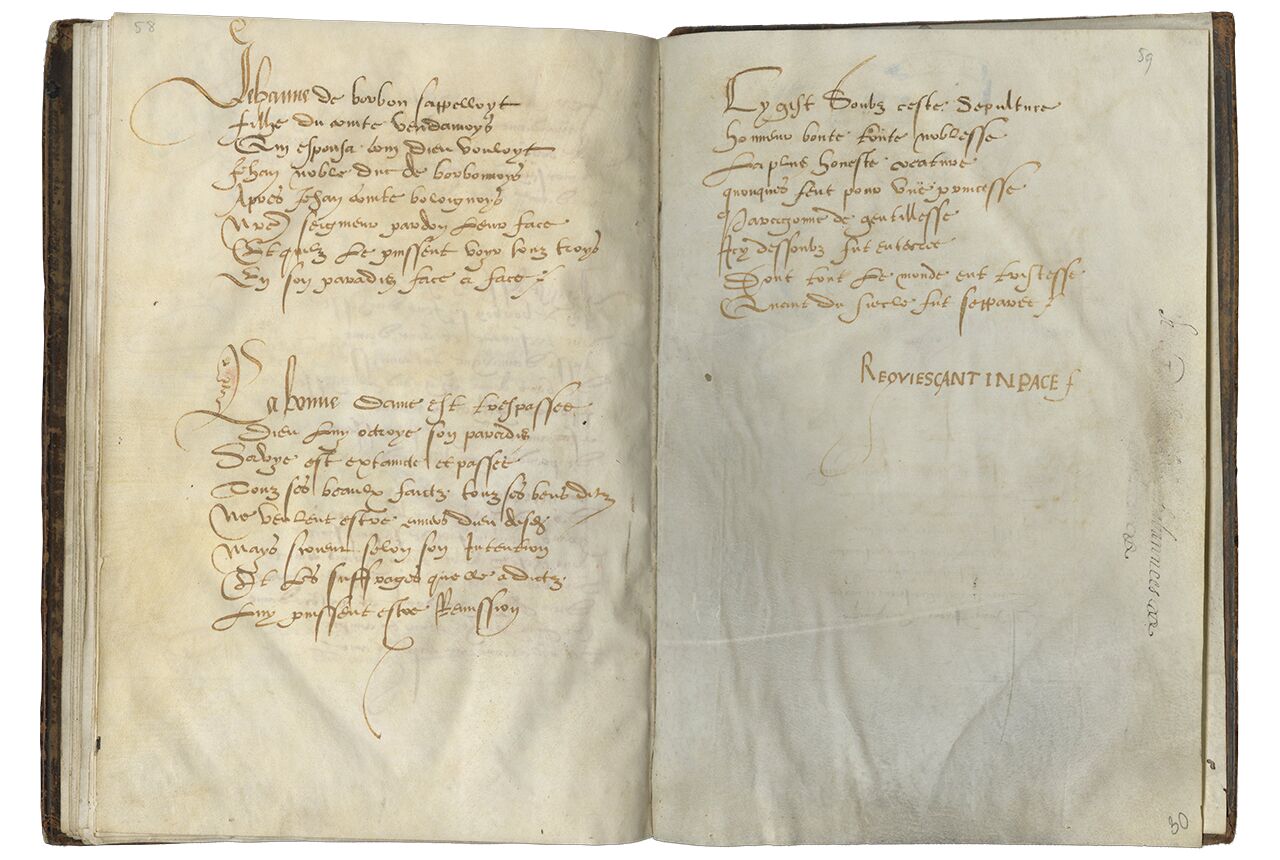 58
Jehanne de borbon sappelloyt
fille du comte vendamoys
Qui espousa com dieu vouloyt
Jehan noble duc de borbonnoys
Apres Jehan comte boloignoys
Nre seigneur pardon leur face
Et quilz le puissent voyr touz troys
En son paradis face a face
La bonne dame est trespassee
Dieu luy octroye son paradis
Sa vye est extaincte et passee
Touz ses beaulx faictz touz ses bens ditz
Ne veulent estre envers dieu
Mays selon son Intention
Et les suffrages que a dictz
Luy puissent estre Remission
59
Cy gist Soubz ceste Sepulture
honneur bonte toute noblesse
La plus honeste creature
quonques feut pour une princesse
Parragonne de gentillesse
Icy dessoubz fut enterree
Dont tout le monde eut tristesse
Quant du siecle fut sepparee
REQVIESCANT IN PACE
30